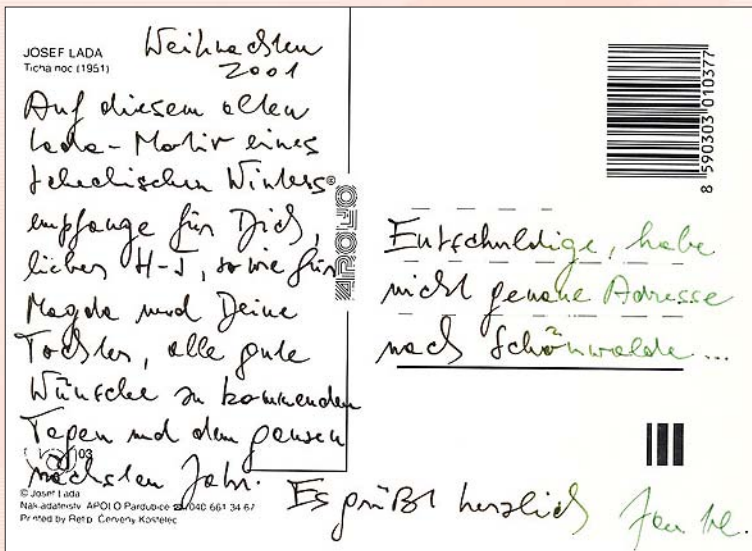 JOSEF LADA
Tichá noc (1951)
Weihnachten
2001
Auf diesem alten
Lada-Motiv eines
tschechischen Winters
empfange für Dich,
lieber H-J, sowie für
Magda und Deine
Tochter, alle gute
Wünsche zu kommenden
Tagen und dem ganzen
nächsten Jahr.
Es grüßt herzlich Jan
03
© Josef Lada
Nakladatelství APOLO Pardubice ☎ 040 661 34 67
Printed by Retip Červený Kostelec
APOLO®
8 590303 010377
Entschuldige, habe
nicht genaue Adresse
nach Schönwalde...